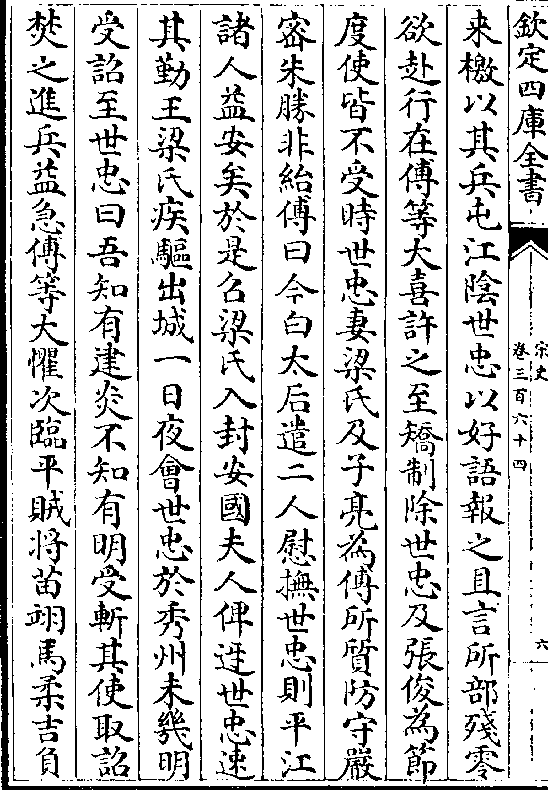 欽定四庫全書
宋史
卷三百六十四
六
来檄以其兵屯江陰世忠以好語報之且言所部殘零
欲赴行在傅等大喜許之至矯制除世忠及張俊為節
度使皆不受時世忠妻梁氏及子亮為傅所質防守嚴
宻朱勝非紿傅曰今白太后遣二人慰撫世忠則平江
諸人益安矣於是召梁氏入封安國夫人俾迓世忠速
其勤王梁氏疾驅出城一日夜會世忠於秀州未幾明
受詔至世忠曰吾知有建炎不知有明受斬其使取詔
焚之進兵益急傅等大懼次臨平賊将苗翊馬柔吉負